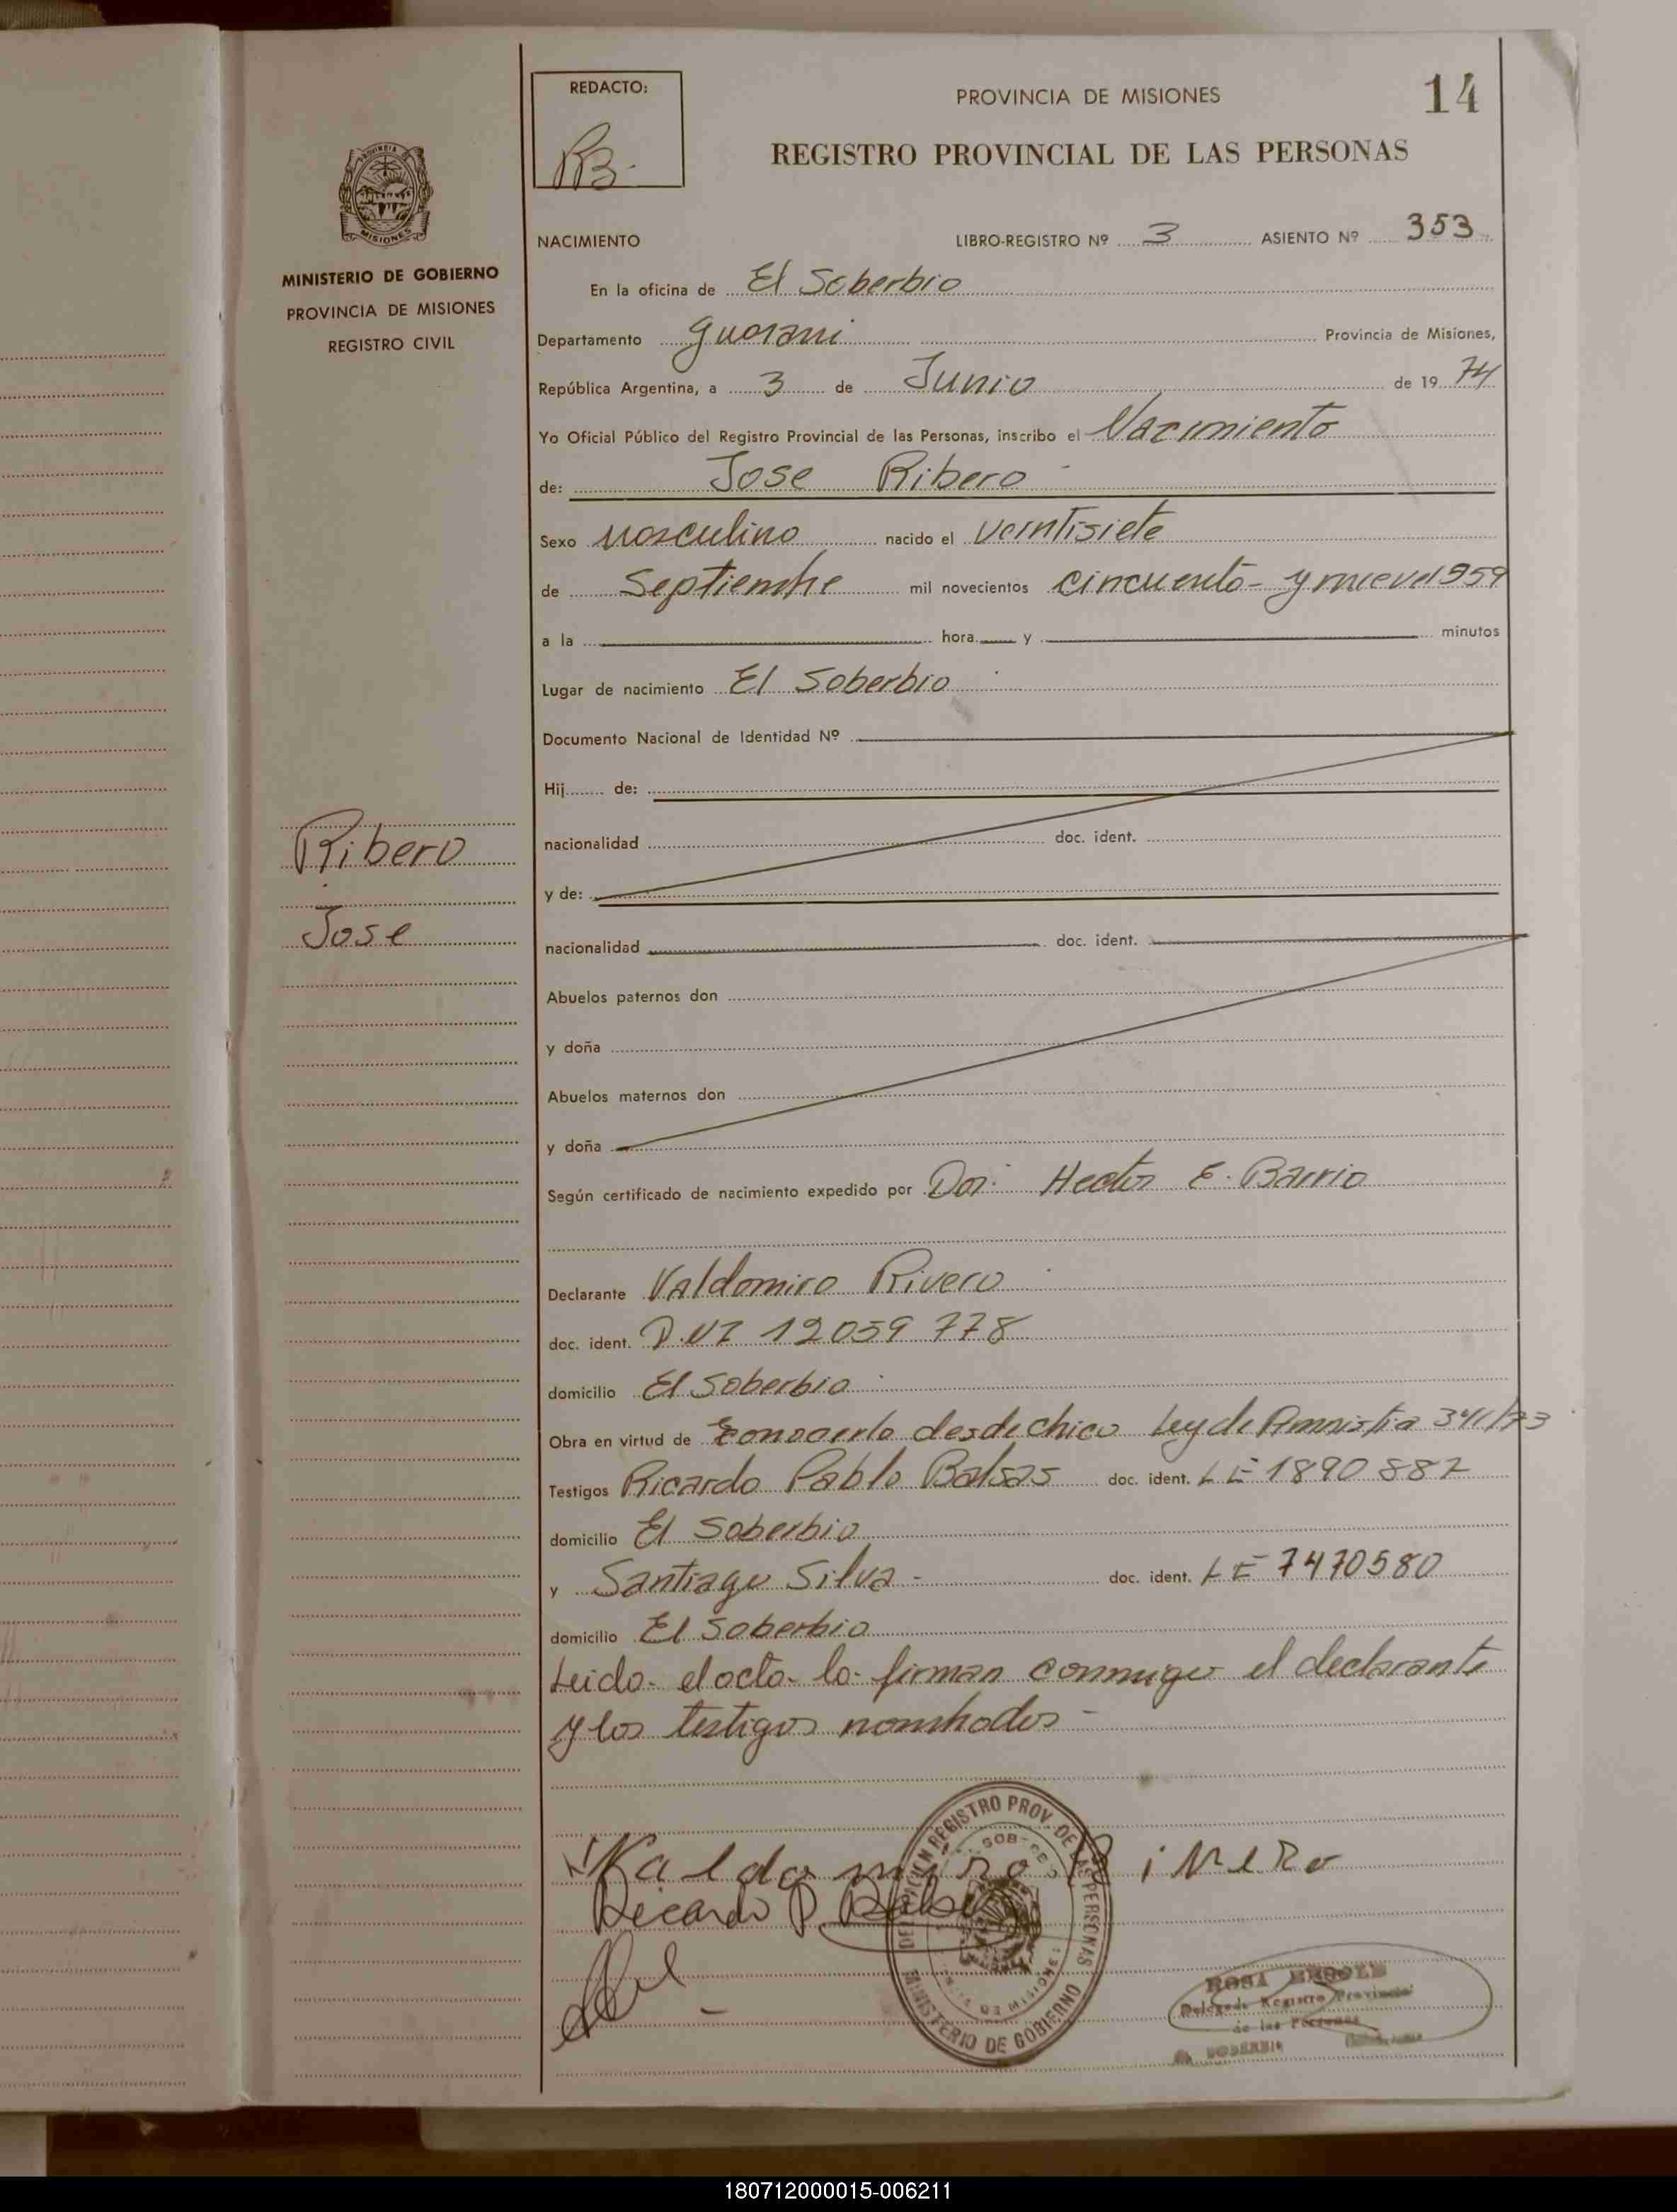 REDACTO:
PROVINCIA DE MISIONES
14
REGISTRO PROVINCIAL DE LAS PERSONAS
PROVINCIA
MISIONES
MINISTERIO DE GOBIERNO
PROVINCIA DE MISIONES
REGISTRO CIVIL
NACIMIENTO LIBRO-REGISTRO Nº 3 ASIENTO Nº 353
En la oficina de El Soberbio
Departamento Guarani Provincia de Misiones,
República Argentina, a 3 de Junio de 1974
Yo Oficial Público del Registro Provincial de las Personas, inscribo el Nacimiento
de: Jose Ribero -
Sexo Masculino nacido el veintisiete
de Septiembre mil novecientos cincuenta y nueve 1959
a la hora y minutos
Lugar de nacimiento El Soberbio
Documento Nacional de Identidad Nº
Hij de:
nacionalidad doc. ident.
y de:
nacionalidad doc. ident.
Ribero
Jose
Abuelos paternos don
y doña
Abuelos maternos don
y doña
Según certificado de nacimiento expedido por Dor. Hector E. Barrio
Declarante Valdomiro Rivero
doc. ident. D.NI 12059 778
domicilio El Soberbio
Obra en virtud de conocerlo desde chico Ley de Amnistia
Testigos Ricardo Pablo Balsas doc. ident. LE 1890 887
domicilio El Soberbio
y Santiago Silva - doc. ident. LE 7470580
domicilio El Soberbio
Leido el acta lo firman conmigo el declarante
y los testigos nombrados -
Valdomiro Rivero
Ricardo P. Balsas
REGISTRO PROV. DE LAS PERSONAS
MINISTERIO DE GOBIERNO
ROSA
Delegada Registro Provincial
de las Personas
SOBERBIO
180712000015-006211